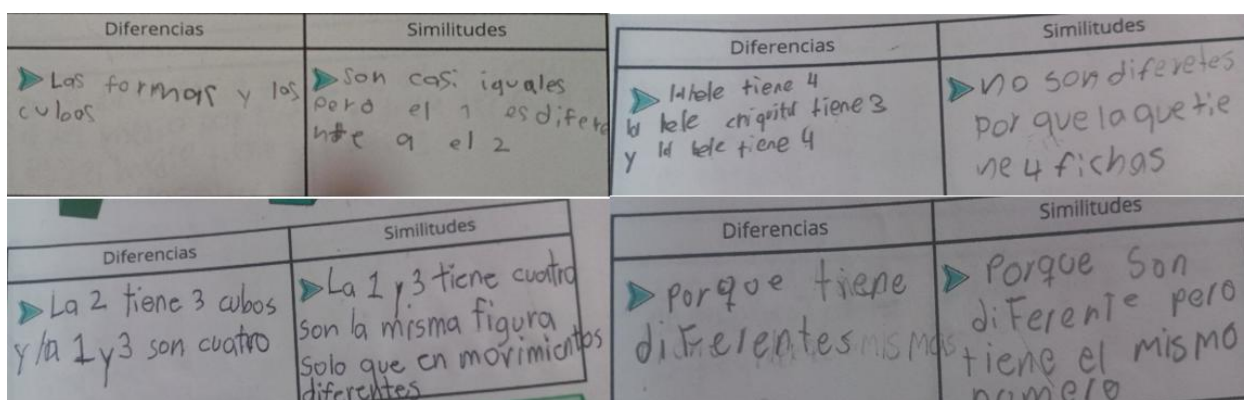 Diferencias
Similitudes
Las formas y los
cubos
son casi iguales
pero el 1 es difere
nte a el 2
Diferencias
Similitudes
la tele tiene 4
la tele chiquita tiene 3
y la tele tiene 4
no son diferetes
por que la que tie
ne 4 fichas
Diferencias
Similitudes
La 2 tiene 3 cubos
y la 1 y 3 son cuatro
La 1 y 3 tiene cuatro
son la misma figura
solo que en movimientos
diferentes
Diferencias
Similitudes
porque tiene
diferentes
Porque son
diferente pero
tiene el mismo
numero